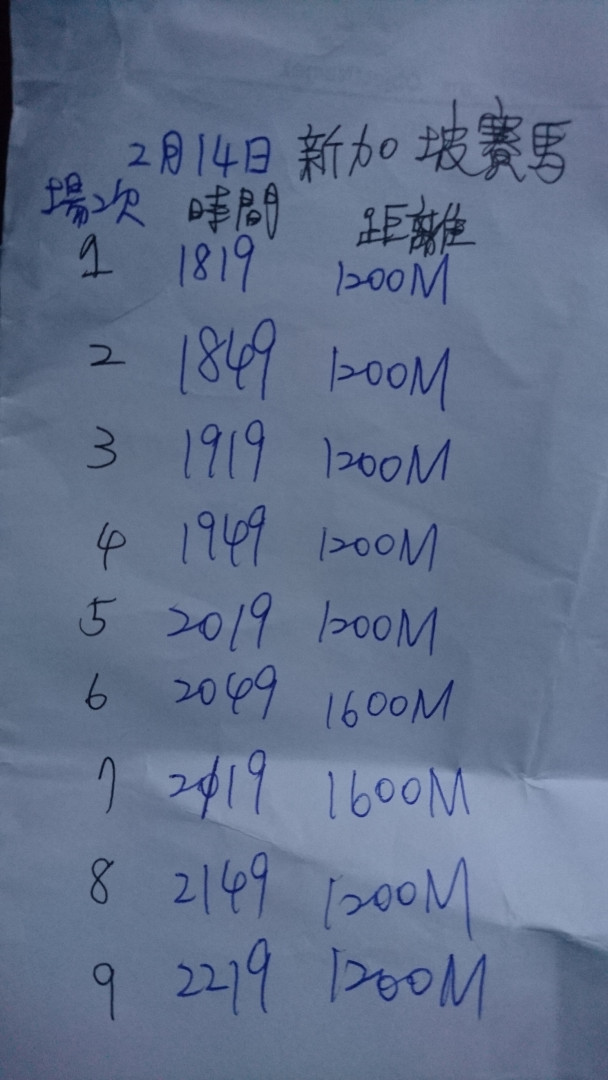 2月14日 新加坡賽馬
場次 時間 距離
1 1819 1200M
2 1849 1200M
3 1919 1200M
4 1949 1200M
5 2019 1200M
6 2049 1600M
7 2119 1600M
8 2149 1200M
9 2219 1200M